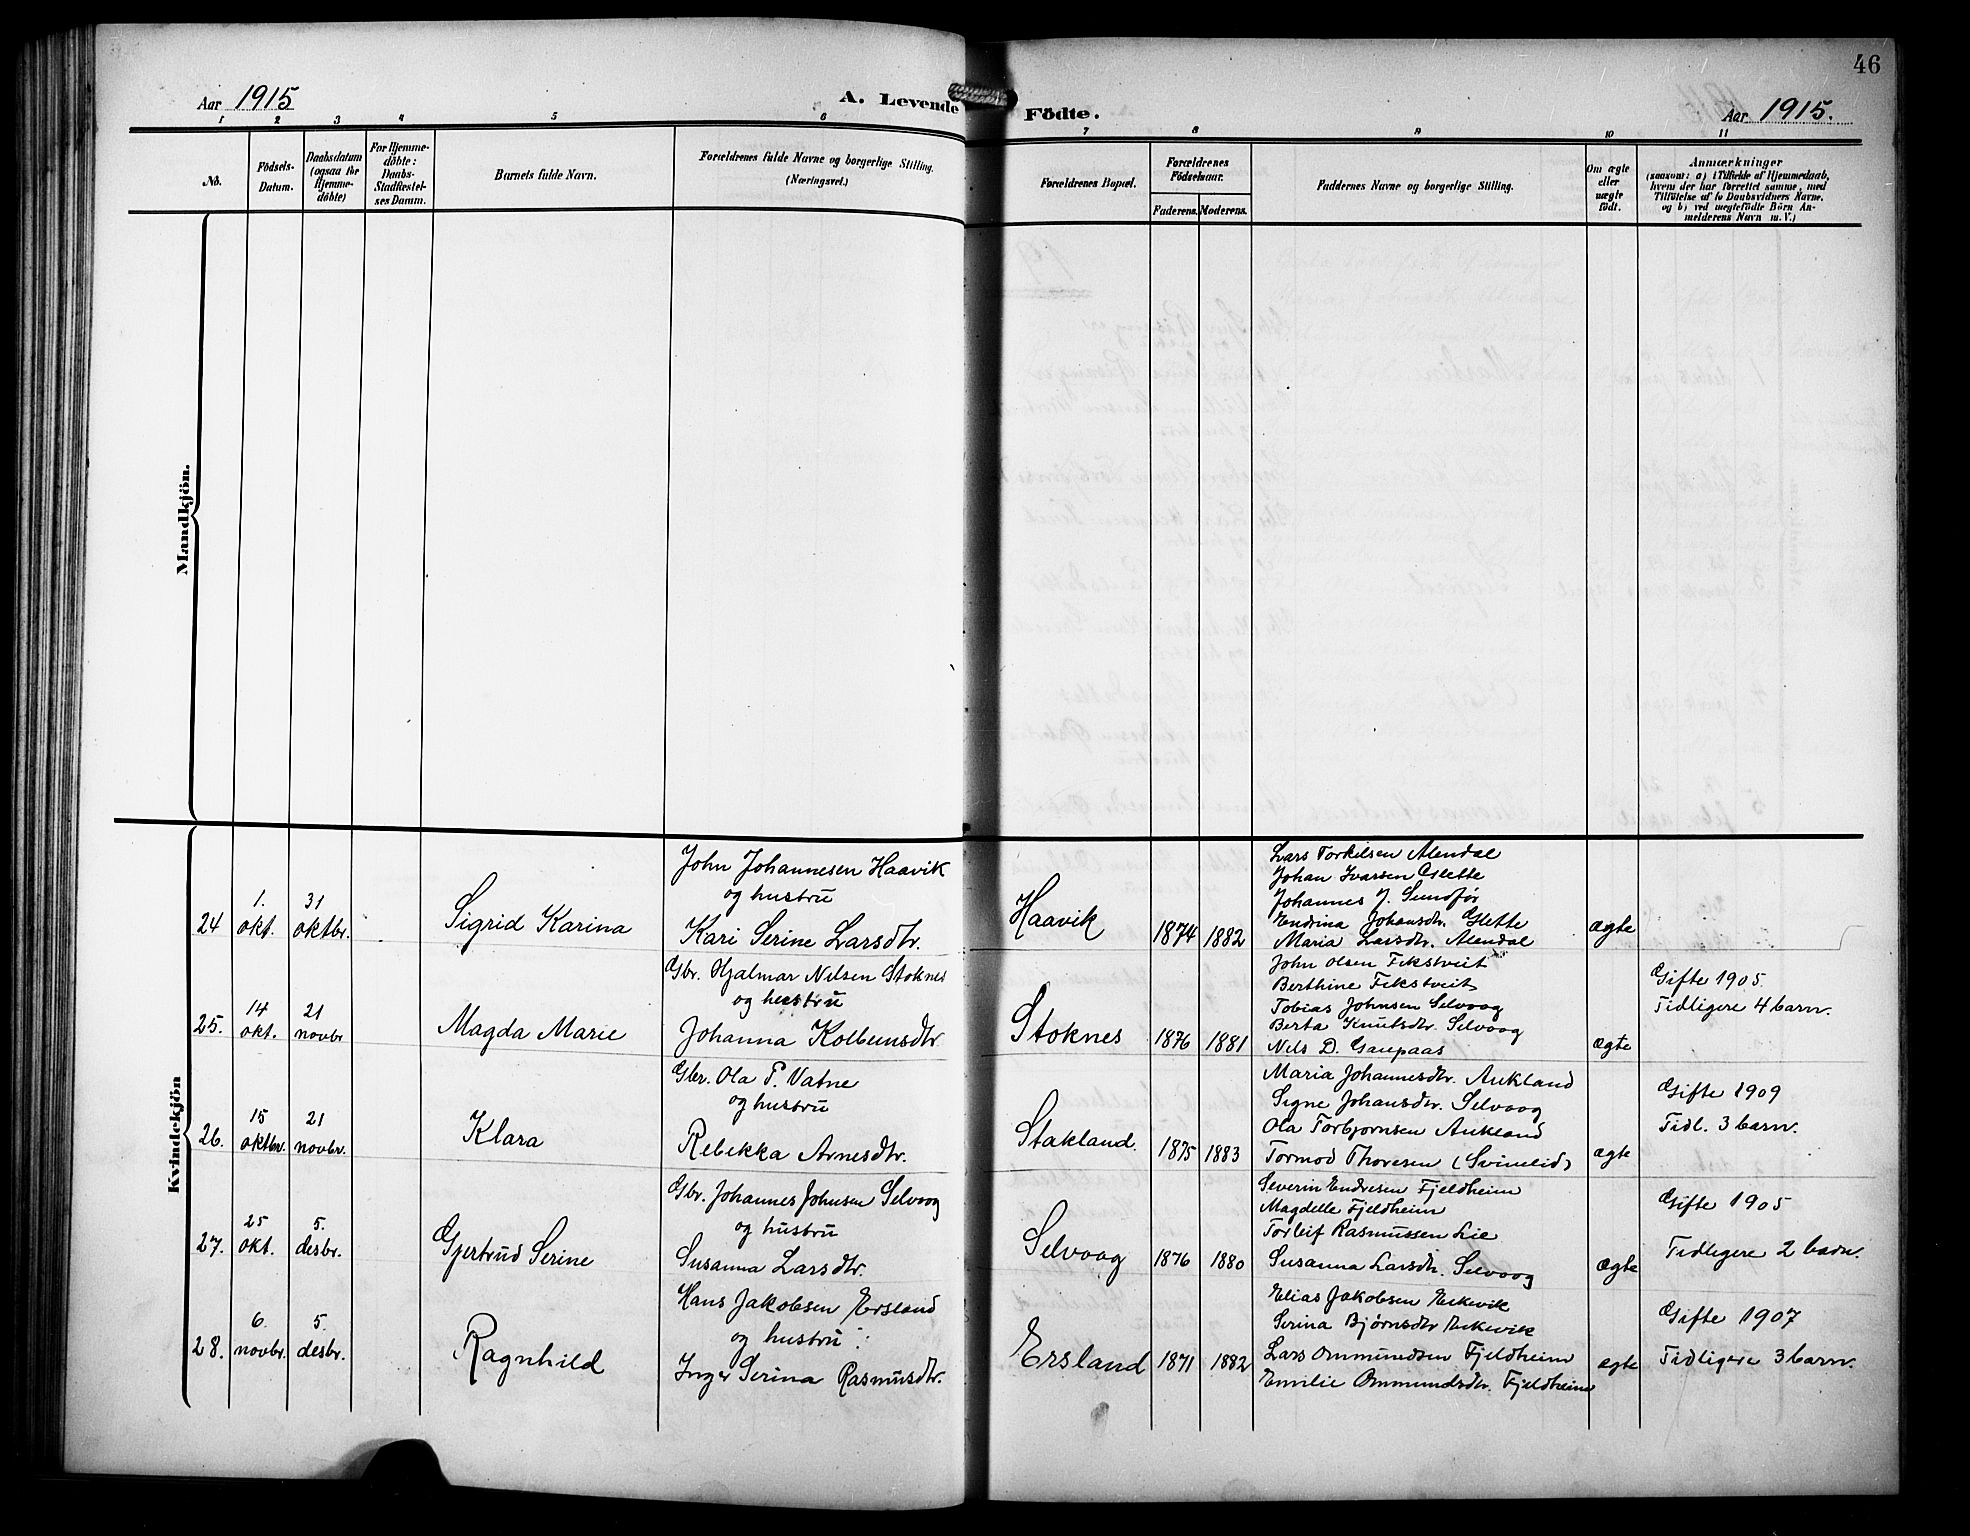 46
Aar 1915
A. Levende Födte.
Aar 1915.
1 2 3 4 5 6 7 8 9 10 11
No.
Födsels-
Datum.
Daabsdatum
(ogsaa for
Hjemme-
döbte)
For Hjemme-
döbte:
Daabs-
Stadfæstel-
ses Datum.
Barnets fulde Navn.
Forældrenes fulde Navne og borgerlige Stilling.
(Næringsvei.)
Forældrenes Bopæl.
Forældrenes
Födselsaar.
Faderens. Moderens.
Faddernes Navne og borgerlige Stilling.
Om ægte
eller
uægte
födt.
Anmærkninger
(saasom: a) i Tilfælde af Hjemmedaab,
hvem der har forrettet samme, med
Tilföielse af to Daabsvidners Navne,
og b) ved uægtefödte Börn An-
melderens Navn m. V.)
Mandkjön.
Kvindekjön
24
1.
okt.
31
oktbr.
Sigrid Karina
John Johannesen Haavik
og hustru
Kari Serine Larsdtr.
Haavik
1874
1882
Lars Torkilsen Alendal
Johan Ivarsen Glette
Johannes J. Sundfør
Endrina Johansdtr. Glette
Maria Larsdtr. Alendal
ægte
25.
14
okt.
21
novbr
Magda Marie
Gbr. Hjalmar Nilsen Stoknes
og hustru
Johanna Kolbeinsdtr
Stoknes
1876
1881
John Olsen Fikstveit
Berthine Fikstveit
Tobias Johnsen Selvoog
Berta Knutsdtr. Selvoog
Nils D. Gaupaas
ægte
Gifte 1905.
Tidligere 4 barn.
26.
15
oktbr.
21
novbr.
Klara
Gbr. Ola P. Vatne
og hustru
Rebekka Arnesdtr.
Stakland.
1875
1883
Maria Johannesdtr. Aukland
Signe Johansdtr. Selvoog
Ola Torbjørnsen Aukland
Tormod Thoresen (Svinelid)
ægte
Gifte 1909
Tidl. 3 barn.
27.
25
okt.
5.
desbr.
Gjertrud Serine
Gbr. Johannes Johnsen Selvoog
og hustru
Susanna Larsdtr.
Selvoog
1876
1880
Severin Endresen Fjeldheim
Magdelle Fjeldheim
Torleif Rasmussen Lie
Susanna Larsdtr. Selvoog
ægte
Gifte 1905
Tidligere 2 barn.
28.
6.
novbr.
5.
desbr.
Ragnhild
Hans Jakobsen Ersland
og hustru:
Inger Serina Rasmusdtr.
Ersland
1871
1882
Elias Jakobsen Eikevik
Serina Bjørnsdtr Eikevik
Lars Ommundsen Fjeldheim
Emilie Ommundsdtr. Fjeldheim
ægte
Gifte 1907
Tidligere 3 barn.